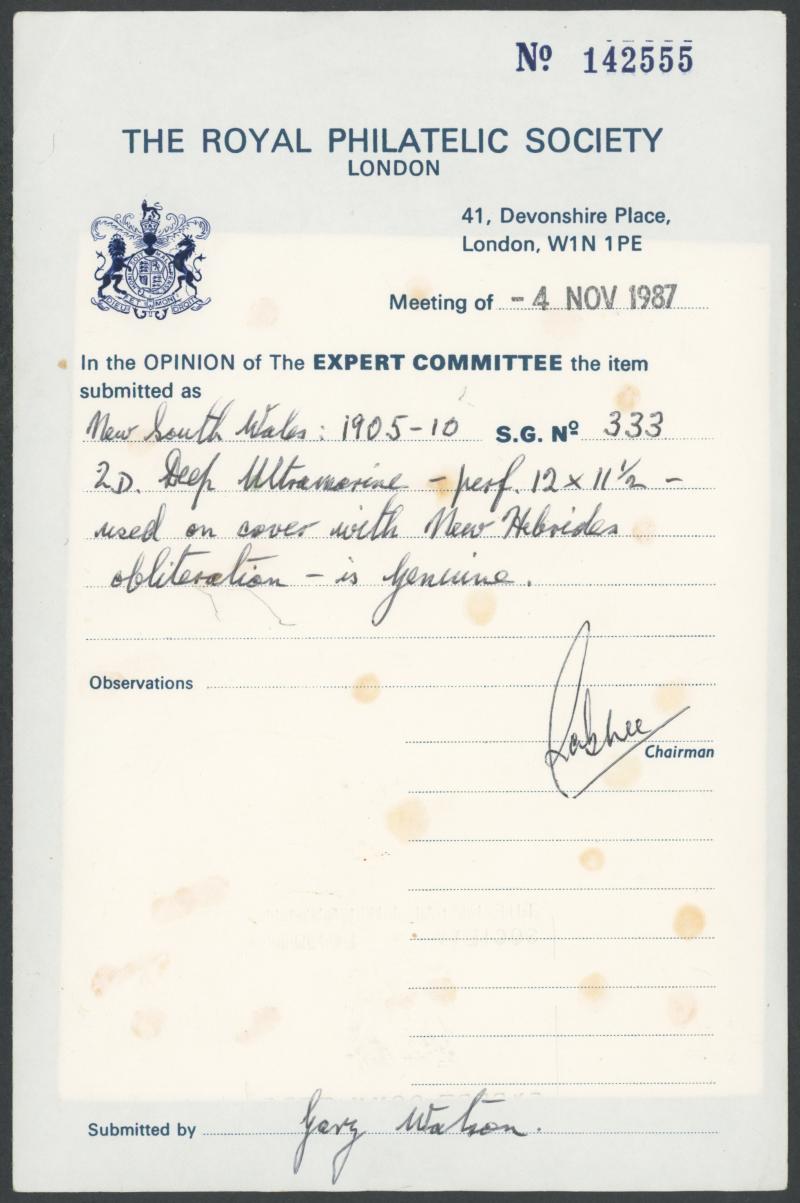 Nº 142555
THE ROYAL PHILATELIC SOCIETY
LONDON
41, Devonshire Place,
London, W1N 1PE
Meeting of - 4 NOV 1987
In the OPINION of The EXPERT COMMITTEE the item
submitted as
New South Wales: 1905-10 S.G. Nº 333
2D. Deep Ultramarine - perf. 12 x 11½ -
used on cover with New Hebrides
obliteration - is genuine.
Observations
Chairman
Submitted by Gary Watson.